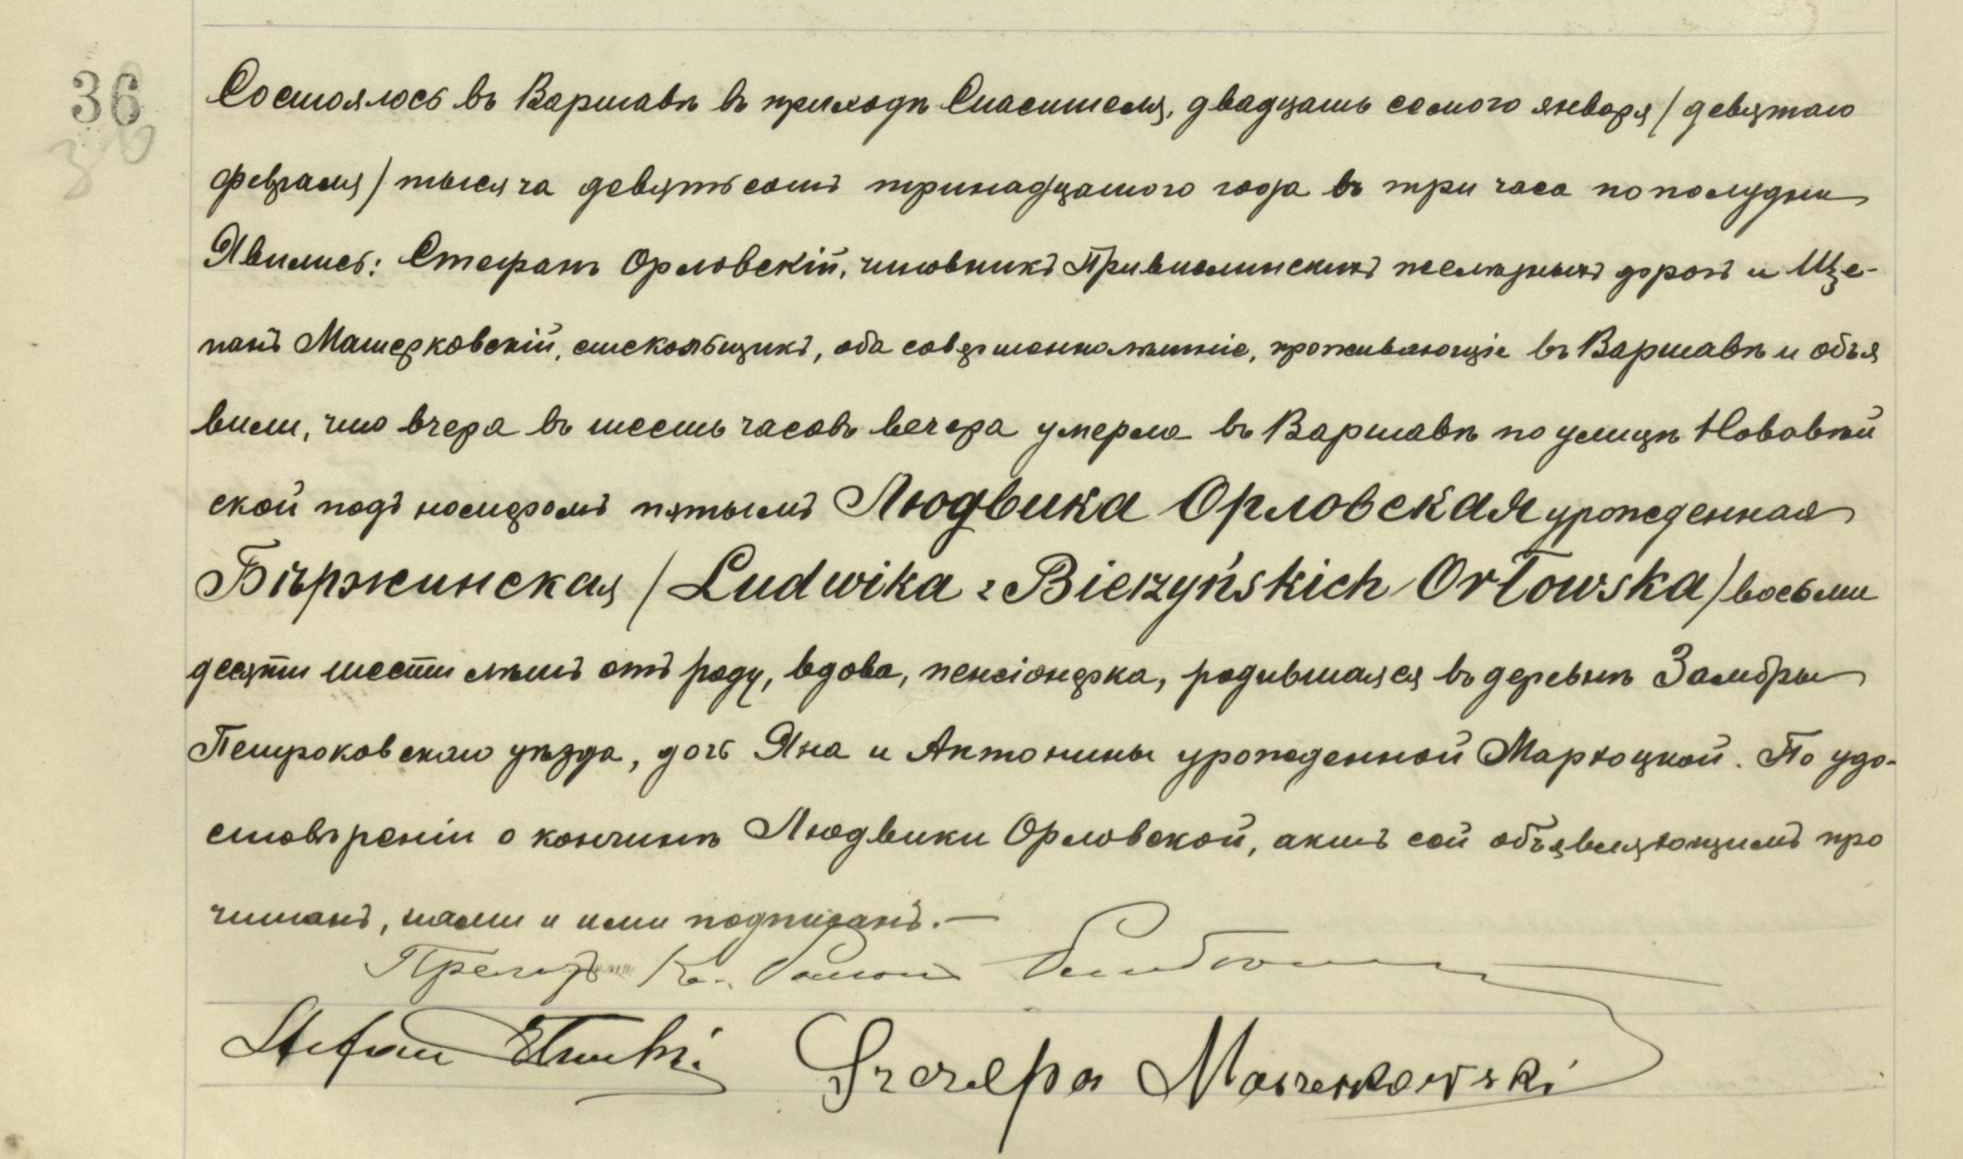 36
36
Состоялось въ Варшавѣ въ приходѣ Спасителя, двадцать седьмого января / девятаго
февраля / тысяча девятьсотъ тринадцатого года въ три часа по полудни
Явились: Стефанъ Орловскій, чиновникъ Привислинскихъ желѣзныхъ дорогъ и Ще-
панъ Матерковскій, стекольщикъ, оба совершеннолѣтніе, проживающіе въ Варшавѣ и объя
вили, что вчера въ шесть часовъ вечера умерла въ Варшавѣ по улицѣ Нововѣй
ской подъ номеромъ пятымъ Людвика Орловская урожденная
Бѣржинская / Ludwika z Bierzyńskich Orłowska / восьми
десяти шести лѣтъ отъ роду, вдова, пенсіонерка, родившаяся въ деревнѣ Замбры
Петроковскаго уѣзда, дочь Яна и Антонины урожденной Мархоцкой. По удо-
стовѣреніи о кончинѣ Людвики Орловской, актъ сей объявляющимъ про
читанъ, нами и ими подписанъ. —
Кс.
Stefan Szczepan